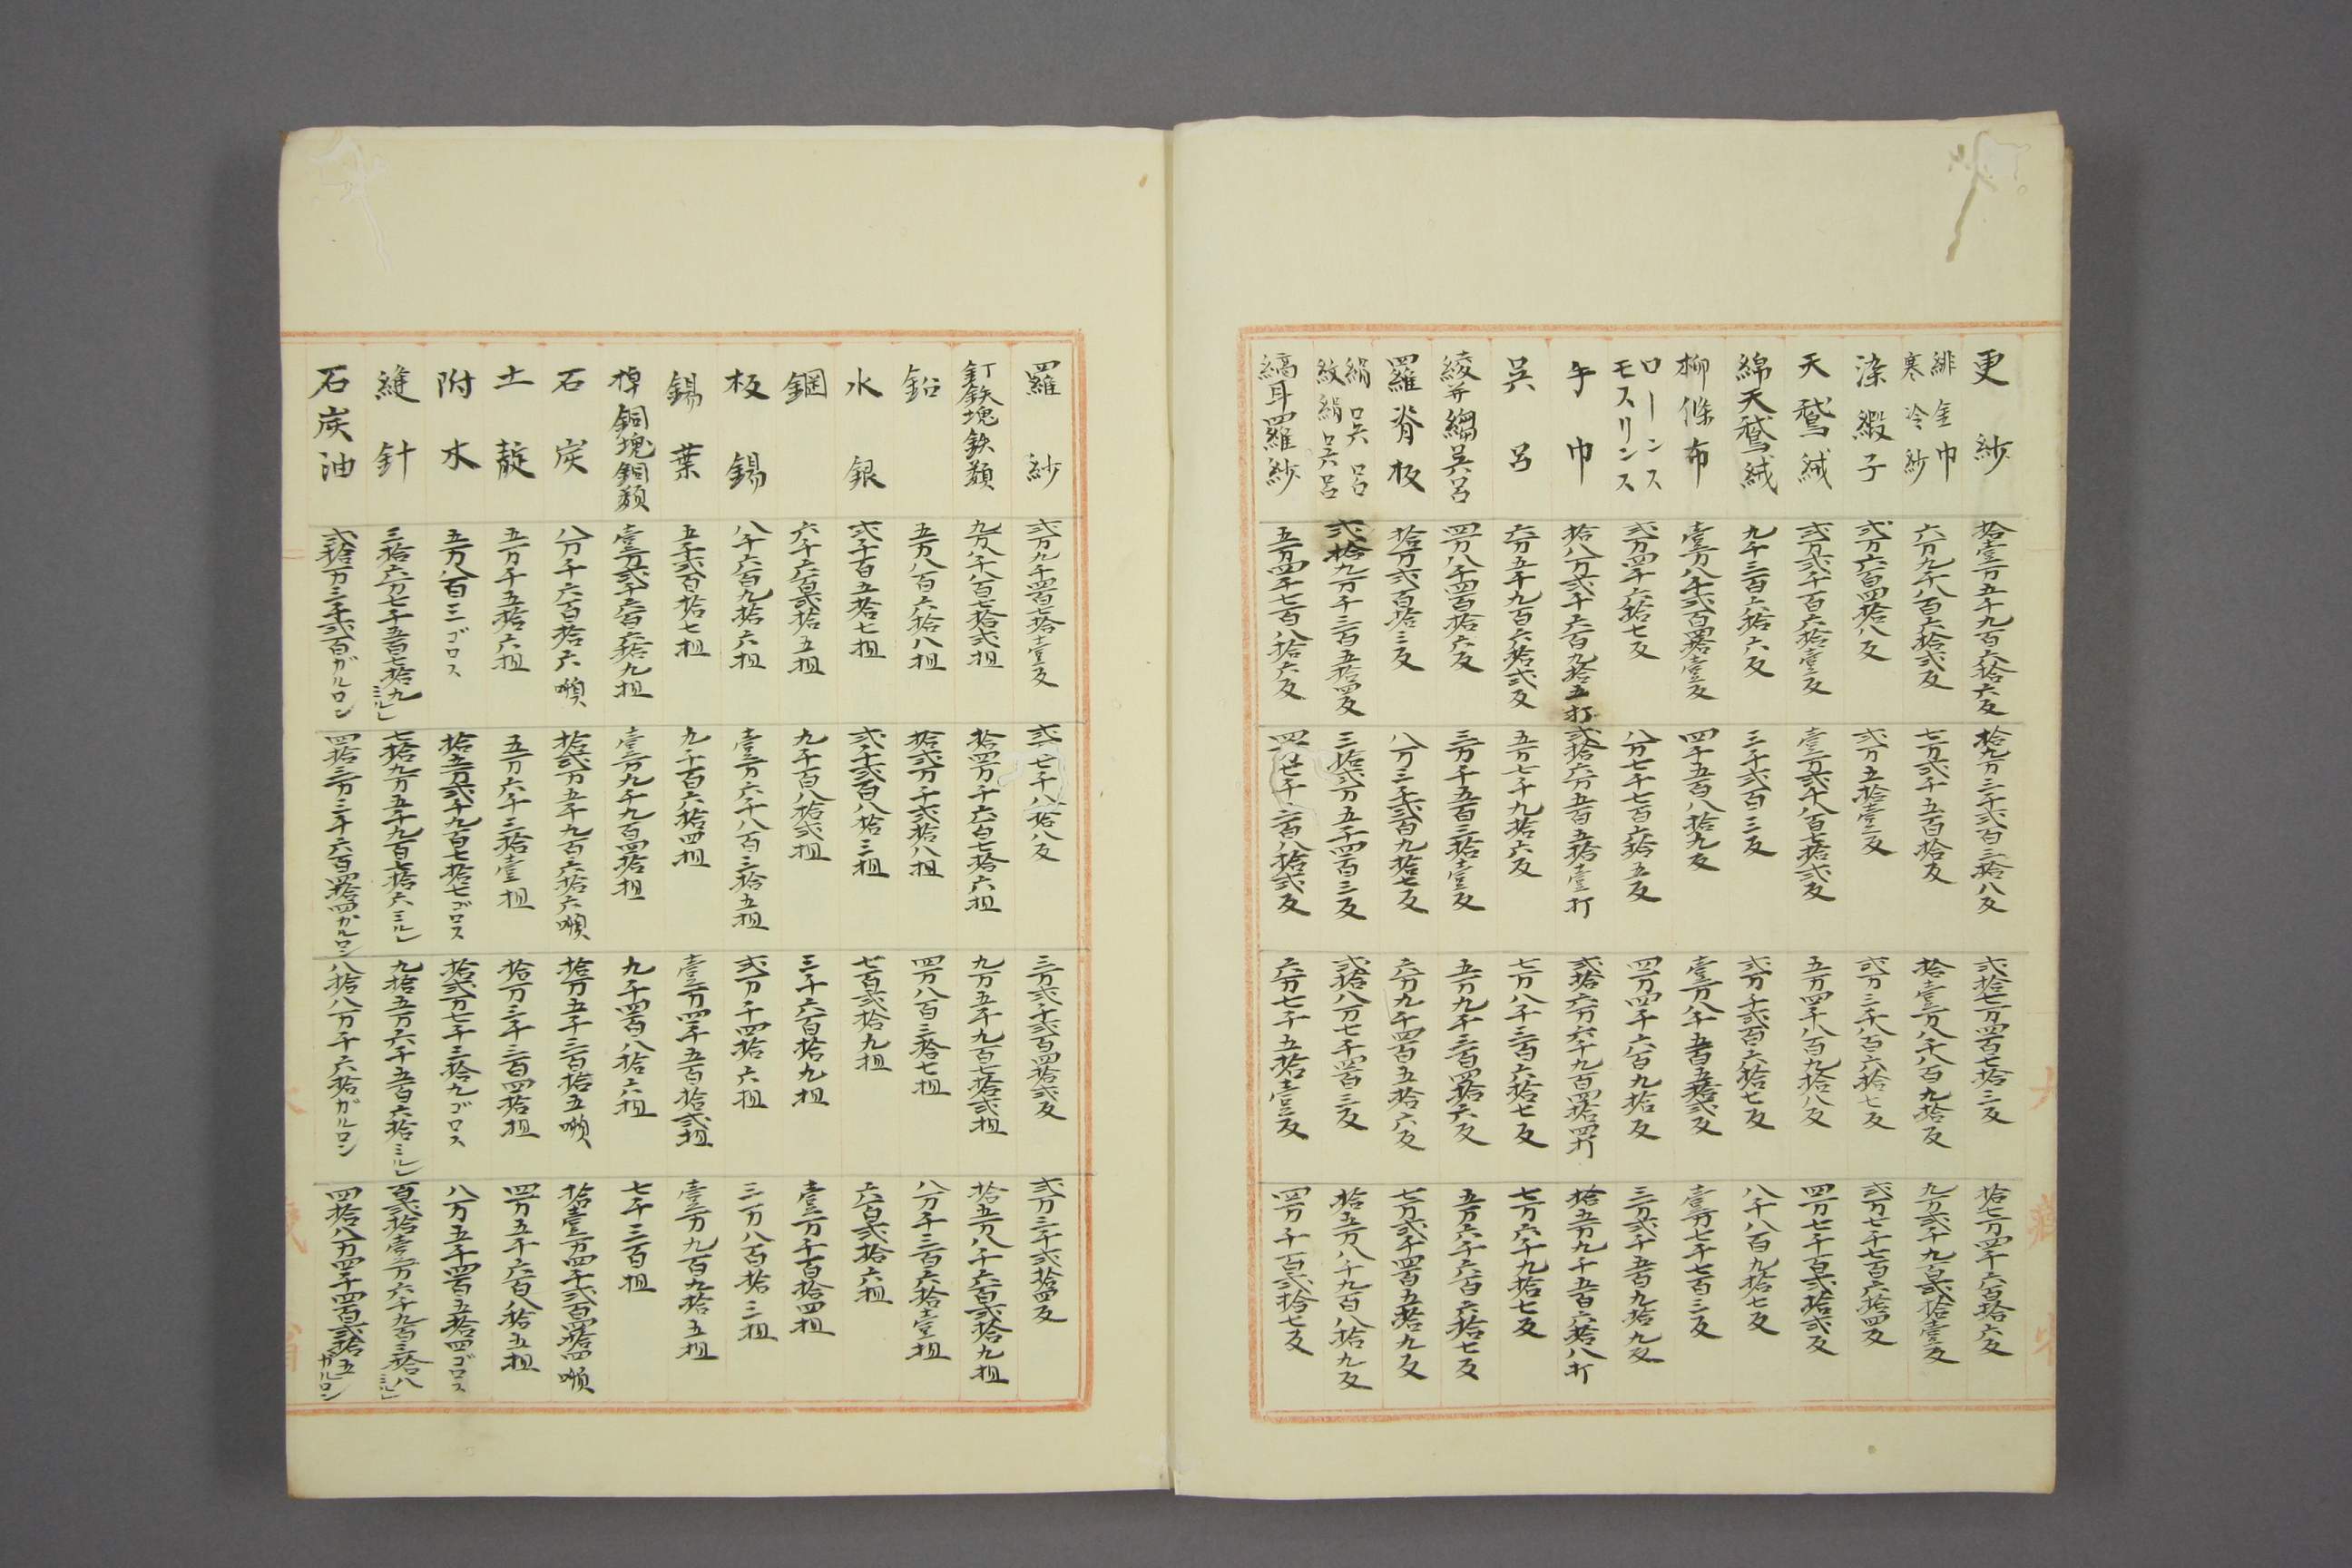 更紗 拾壹万五千九百六拾六反 拾九万三千弐百三拾八反 弐拾七万四百七拾三反 拾七万四千六百拾六反
緋金巾 寒冷紗 六万九千八百六拾弐反 七万弐千五百拾反 拾壹万八千八百九拾反 九万弐千九百弐拾壹反
染緞子 弐万六百四拾八反 弐万五拾壹反 弐万三千八百六拾七反 弐万七千七百六拾四反
天鵞絨 弐万弐千百六拾壹反 壹万弐千八百七拾弐反 五万四千八百九拾八反 四万七千百弐拾弐反
綿天鵞絨 九千三百六拾六反 三千弐百三反 弐万千弐百六拾七反 八千八百九拾七反
柳條布 壹万八千弐百四拾壹反 四千五百八拾九反 壹万八千五百五拾弐反 壹万七千七百三反
ローンス モスリンス 弐万四千六拾七反 八万七千七百六拾五反 四万四千六百九拾反 三万弐千五百九拾九反
手巾 拾八万弐千六百九拾五打 弐拾六万五百五拾壹打 弐拾六万六千九百四拾四打 拾五万九千五百六拾八打
呉呂 六万五千九百六拾弐反 五万七千九拾六反 七万八千三百六拾七反 七万六千九拾七反
綾并縐呉呂 四万八千四百拾六反 三万千五百三拾壹反 五万九千三百四拾六反 五万六千六百六拾七反
羅脊板 拾万弐百拾三反 八万三千弐百九拾七反 六万九千四百五拾六反 七万弐千四百五拾九反
絹呉呂 紋絹呉呂 弐拾九万千三百五拾四反 三拾弐万五千四百三反 弐拾八万七千四百三反 拾五万八千九百八拾九反
縞耳羅紗 五万四千七百八拾六反 四万七千三百八拾弐反 六万七千五拾壹反 四万千百弐拾七反
羅紗 弐万九千四百七拾壹反 弐万七千八拾八反 三万弐千弐百四拾弐反 弐万三千弐拾四反
釘鉄塊鉄類 九万八千八百七拾弐担 拾四万千六百七拾六担 九万五千九百七拾弐担 拾五万八千六百弐拾九担
鉛 五万八百六拾八担 拾弐万千弐拾八担 四万八百三拾七担 八万千三百六拾壹担
水銀 弐千百五拾七担 弐千弐百八拾三担 七百弐拾九担 六百弐拾六担
鋼 六千六百弐拾五担 九千百八拾弐担 三千六百拾九担 壹万千百拾四担
板錫 八千六百九拾六担 壹万六千八百三拾五担 弐万千四拾六担 三万八百拾三担
錫葉 五千弐百拾七担 九千百六拾四担 壹万四千五百拾弐担 壹万九百九拾五担
棹銅塊銅類 壹万弐千六百六拾九担 壹万九千九百四拾担 九千四百八拾六担 七千三百担
石炭 八万千六百拾六噸 拾弐万五千九百六拾六噸 拾万五千三百拾五噸 拾壹万四千弐百四拾四噸
土靛 五万千五拾六担 五万六千三拾壹担 拾万三千三百四拾担 四万五千六百八拾五担
附木 五万八百三ゴロス 拾五万弐千九百七拾七ゴロス 拾弐万七千三拾九ゴロス 八万五千四百五拾四ゴロス
縫針 三拾六万七千五百七拾九ミル 七拾九万五千九百七拾六ミル 九拾五万六千五百六拾ミル 百弐拾壹万六千九百三拾八ミル
石炭油 弐拾万三千弐百ガルロン 四拾三万三千六百四拾四ガルロン 八拾八万千六拾ガルロン 四拾八万四千四百弐拾五ガルロン